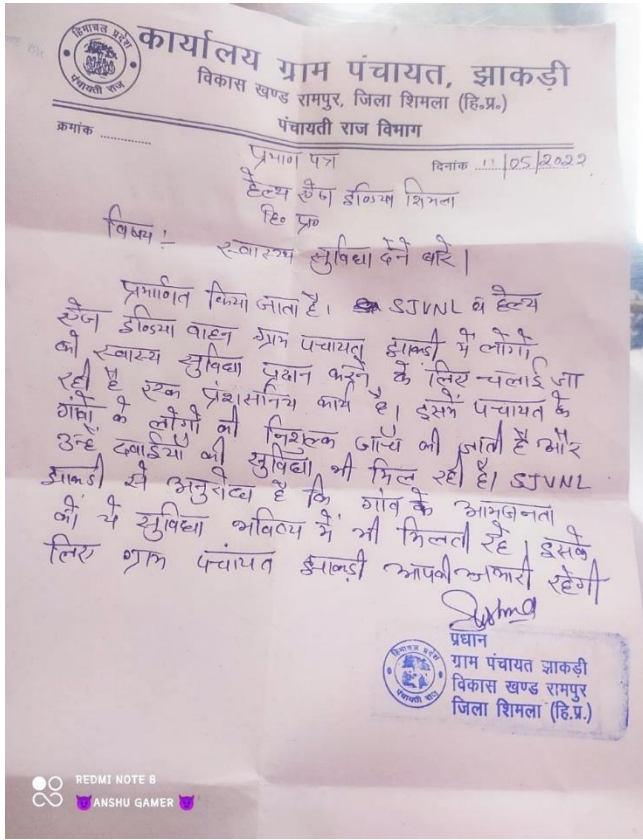 हिमाचल प्रदेश
पंचायती राज
कार्यालय ग्राम पंचायत, झाकड़ी
विकास खण्ड रामपुर, जिला शिमला (हि०प्र०)
पंचायती राज विभाग
क्रमांक ..............
दिनांक 11/05/2022
प्रमाण पत्र
हैल्थ ऐज इण्डिया शिमला
हि० प्र०
विषय :- स्वास्थ्य सुविधा देने बारे |
प्रमाणित किया जाता है। SJVNL व हेल्थ
ऐज इण्डिया वाहन ग्राम पंचायत झाकडी में लोगो
को स्वास्थ्य सुविधा प्रदान करने के लिए चलाई जा
रही है एक प्रंशसनिय कार्य है। इसमें पंचायत के
गांवो के लोगो की निशुल्क जाँच की जाती है और
उन्हें दवाईयाँ की सुविधा भी मिल रही है। SJVNL
झाकडी से अनुरोध है कि गांव के आमजनता
को ये सुविधा भविष्य में भी मिलती रहे, इसके
लिए ग्राम पंचायत झाकड़ी आपकी अभारी रहेगी
प्रधान
ग्राम पंचायत झाकड़ी
विकास खण्ड रामपुर
जिला शिमला (हि.प्र.)
हिमाचल प्रदेश
पंचायती राज
REDMI NOTE 8
😈ANSHU GAMER 😈